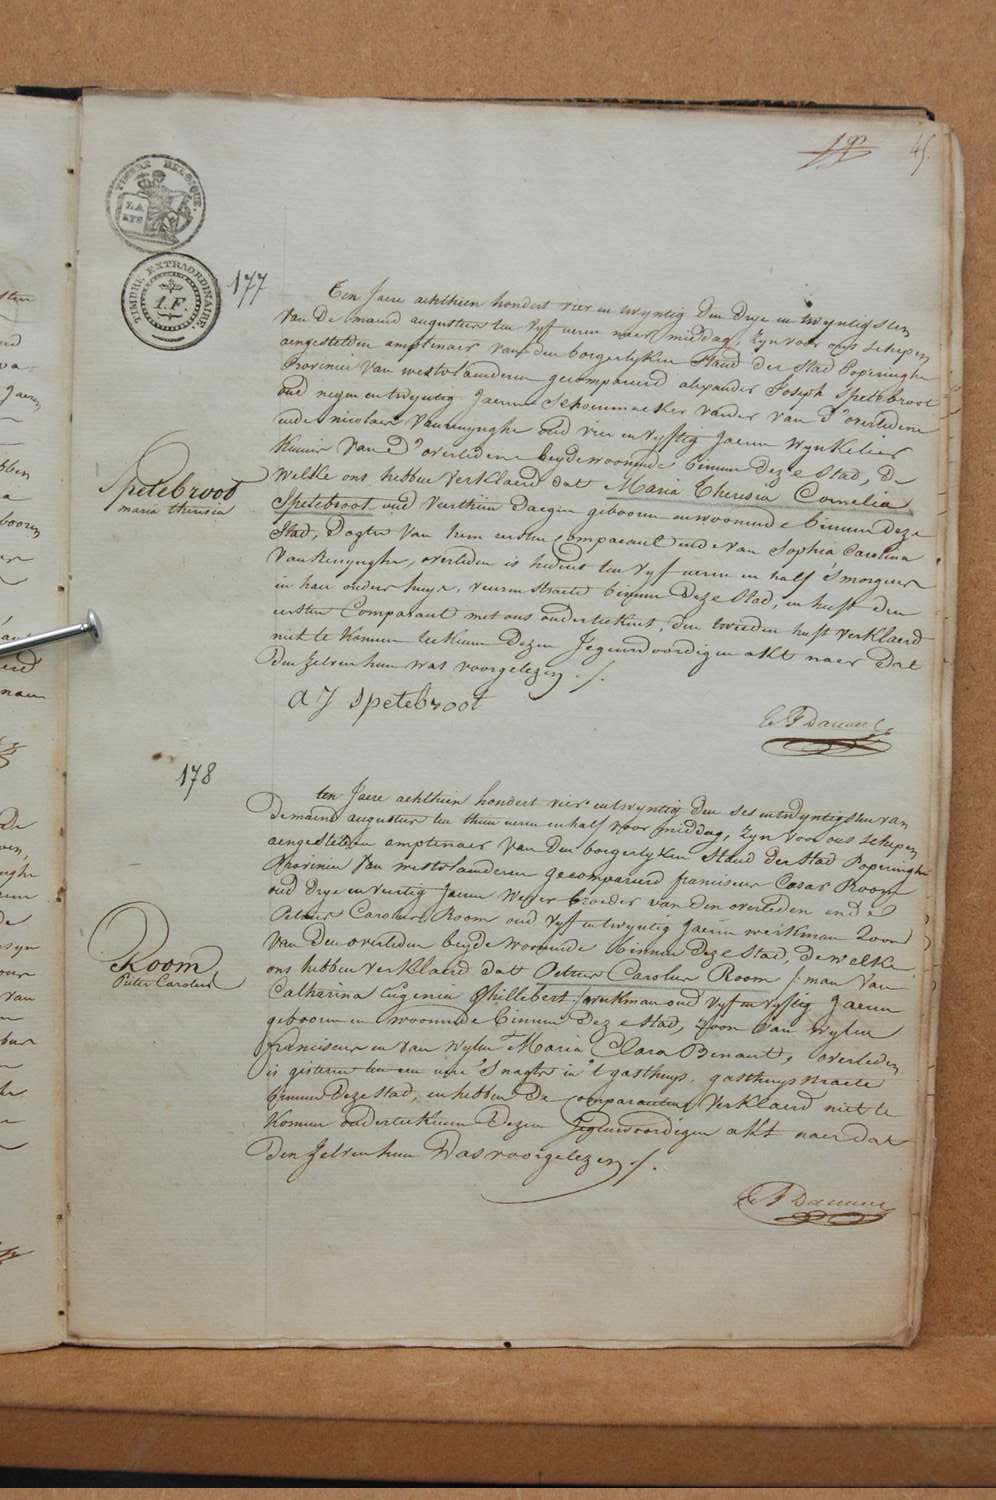 45.
TIMBRE BELGIQUE.
LA
LYS
TIMBRE EXTRAORDINAIRE
1.F.
177
Ten Jaere achthien hondert vier en twyntig den drye en twyntigsten
van de maend augustus ten vyf uren naer middag, zyn voor ons schepen
aengestelden amptenaer van den borgerlyken Stand der Stad Poperinghe
Provincie van westvlaenderen gecompareerd alexander Joseph Spetebroot
oud negen en twyntig Jaeren Schoenmaeker vander van d'overledene
ende nicolaus Vanrenynghe oud vier en vyftig Jaeren Wynkelier
Kennis van d'overledene beyde woonende binnen deze Stad, de
welke ons hebben verklaerd dat Maria Theresia Cornelia
Spetebroot oud veerthien daegen gebooren en woonende binnen deze
Stad, Dogter van hem eersten comparant ende van Sophia Carolina
Vanrenynghe, overleden is heden ten vyf uren en half 's morgens
in haer ouders huys, veurnstraete binnen deze Stad, en heeft den
eersten Comparant met ons onderteekent, den tweeden heeft verklaerd
niet te konnen teekenen dezen Jegenwoordigen akt naer dat
den zelven hun was voorgelezen ./.
Spetebroot
maria theresia
A J Spetebroot
178
ten Jaere achthien hondert vier en twyntig den ses en twyntigsten van
de maend augustus ten thien uren en half voor middag, zyn voor ons schepen
aengestelden amptenaer van den borgerlyken Stand der Stad Poperinghe
Provincie van westvlaenderen gecompareerd franciscus Cesar Room
oud drye en veertig Jaeren Wever broeder van den overleden ende
Petrus Carolus Room oud vyf en twyntig Jaeren werkman Zoon
van den overleden beyde woonende binnen deze Stad, de welke
ons hebben verklaerd dat Petrus Carolus Room /: man van
Catharina Eugenia Ghillebert :/ werkman oud vyf en vyftig Jaeren
gebooren en woonende binnen deze Stad, Zoon van wylen
franciscus en van wylen Maria Clara Benaut, overleden
is gisteren ten een ure 's nagts in 't gasthuys, gasthuysstraete
binnen deze Stad, en hebben de comparanten verklaerd niet te
konnen onderteekenen dezen Jegenwoordigen akt naer dat
den zelven hun Was voorgelezen ./.
Room
Pieter Carolus